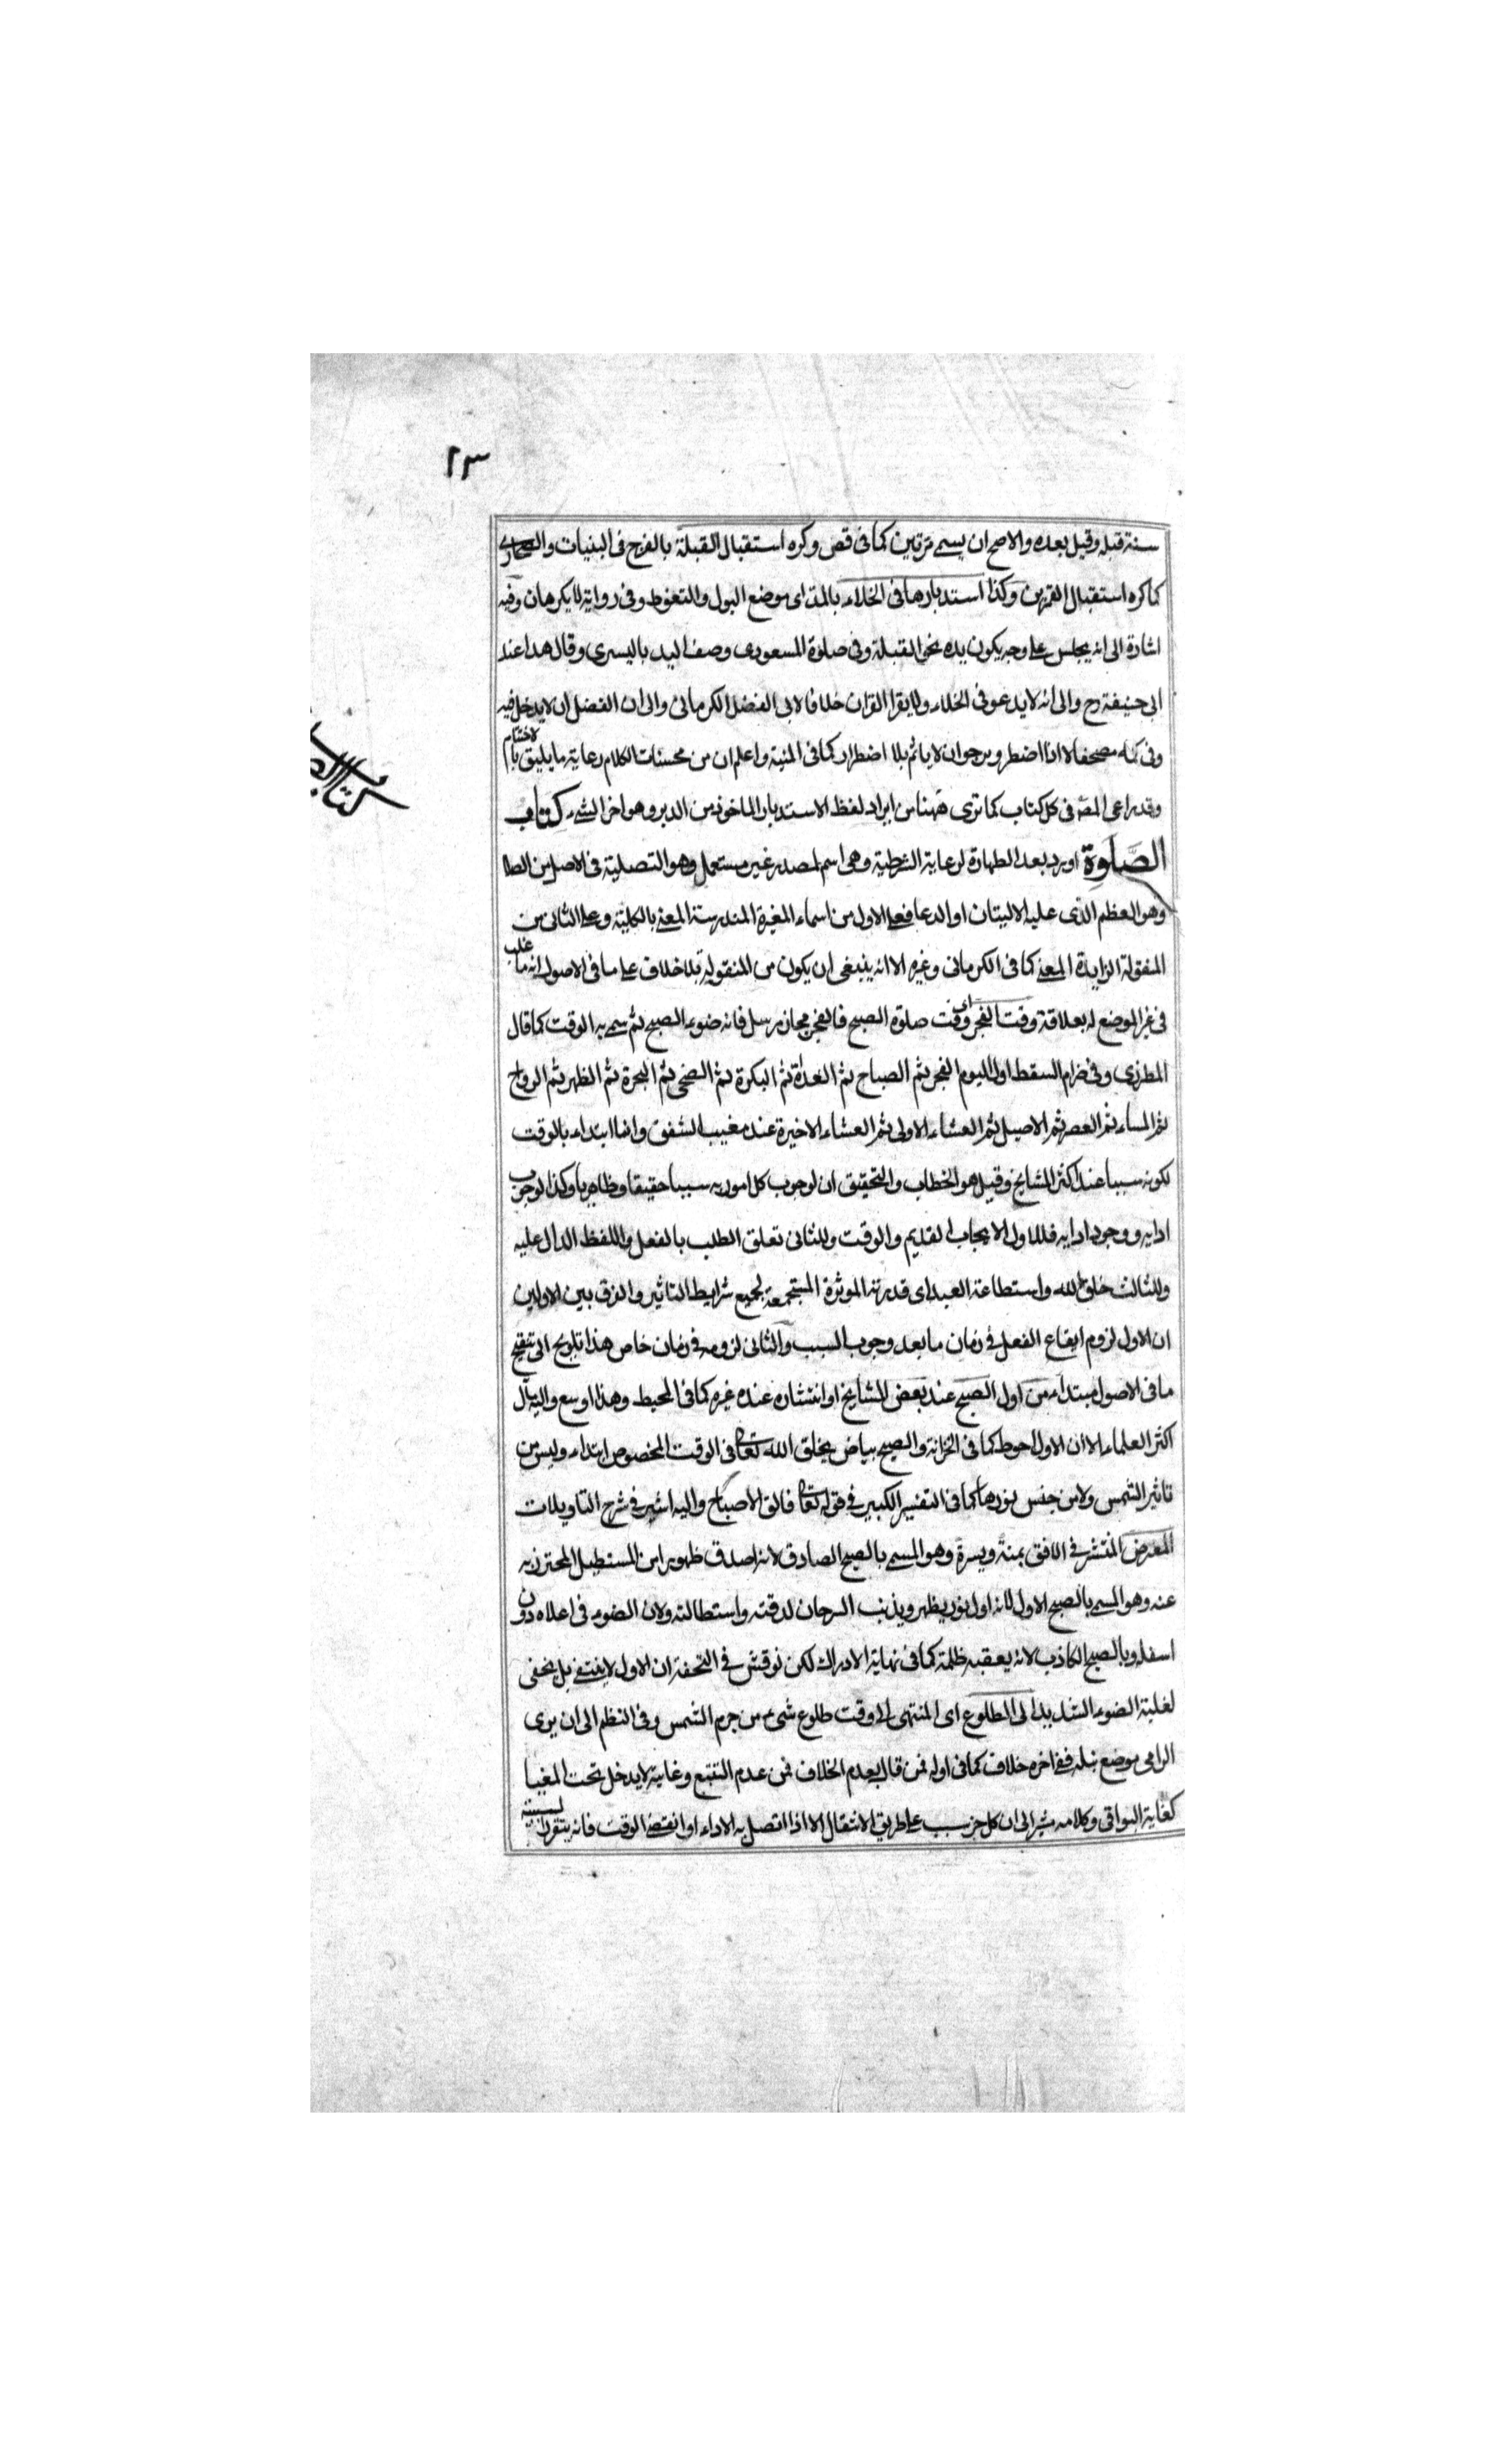 ٢٣
سنة قبله وقيل بعده والاصح ان يسمى مرتين كما فى قض وكره استقبال القبلة بالفرج فى البنيات والصحارى
كما كره استقبال القمرين وكذا استدبارها فى الخلاء بالمد اى موضع البول والتغوط وفى رواية لا يكرهان وفيه
اشارة الى انه يجلس على وجه يكون يده نحو القبلة وفى صلوة المسعودى وصف اليد باليسرى وقال هذا عند
ابى حنيفة رح والى انه لا يدعو فى الخلاء ولا يقرا القران خلافا لابى الفضل الكرمانى والى ان الفضل ان لا يدخل فيه
وفى كمه مصحفا الا اذا اضطر ويرجو ان لا ياثم بلا اضطرار كما فى المنية واعلم ان من محسنات الكلام رعاية ما يليق بالاختتام
وقد راعى المصـ فى كل كتاب كما ترى ههنا من ايراد لفظ الاستدبار الماخوذ من الدبر وهو اخر الشىء كتاب
الصلوة اورد بعد الطهارة لرعاية الشرطية وهى اسم لمصدر غير مستعمل وهو التصلية فى الاصل من الصلا
وهو العظم الذى عليه الاليتان او الدعا فعلى الاول من اسماء المغيرة المندرسة المعنى بالكلية وعلى الثانى من
المنقولة الزايدة المعنى كما فى الكرمانى وغيره الا انه ينبغى ان يكون من المنقولة بلا خلاف على ما فى الاصول انه ما غلب
فى غير الموضع له بعلاقة وقت الفجر اى وقت صلوة الصبح فالفجر مجاز مرسل فانه ضوء الصبح ثم سمى به الوقت كما قال
المطرزى وفى ضرام السقط اول اليوم الفجر ثم الصباح ثم الغداة ثم البكرة ثم الضحى ثم الهجرة ثم الظهر ثم الرواح
ثم المساء ثم العصر ثم الاصيل ثم العشاء الاولى ثم العشاء الاخيرة عند مغيب الشفق وانما ابتداء بالوقت
لكونه سببا عند اكثر المشايخ وقيل هو الخطاب والتحقيق ان لوجوب كل امور به سببا حقيقيا وظاهريا وكذا لوجوب
ادايه ووجود ادايه فللاول الايجاب القديم والوقت وللثانى تعلق الطلب بالفعل واللفظ الدال عليه
وللثالث خلق الله واستطاعة العبد اى قدرته الموثرة المستجمعة لجميع شرايط التاثير والفرق بين الاولين
ان الاول لزوم ايقاع الفعل فى زمان ما بعد وجوب السبب والثانى لزومه فى زمان خاص هذا تلويح الى تنقيح
ما فى الاصول مبتداء من اول الصبح عند بعض المشايخ او انتشاره عند غيره كما فى المحيط وهذا اوسع واليه مال
اكثر العلماء الا ان الاول احوط كما فى الخزانة والصبح بياض يخلق الله تعالى فى الوقت المخصوص ابتداء وليس من
تاثير الشمس ولا من جنس نورها كما فى التفسير الكبير فى قوله تعالى فالق الاصباح واليه اشير فى شرح التاويلات
المعرض المنتشر فى الافق يمنة ويسرة وهو المسمى بالصبح الصادق لانه اصدق ظهورا من المستطيل المحترز به
عنه وهو المسمى بالصبح الاول لانه اول نور يظهر وبذنب السرحان لدقته واستطالته ولان الضوء فى اعلاه دون
اسفله وبالصبح الكاذب لانه يعقبه ظلمة كما فى نهاية الادراك لكن نوقش فى التحفة ان الاول لا ينتفى بل يخفى
لغلبة الضوء الشديد الى الطلوع اى المنتهى الى وقت طلوع شىء من جرم الشمس وفى النظم الى ان يرى
الرامى موضع نبله ففى اخره خلاف كما فى اوله فمن قال بعدم الخلاف فمن عدم التتبع وغايته لا يدخل تحت المغيا
كغاية البواقى وكلامه مشير الى ان كل جزء سبب على طريق الانتقال الا اذا اتصل به الاداء او انقضى الوقت فانه يتقرر السببية